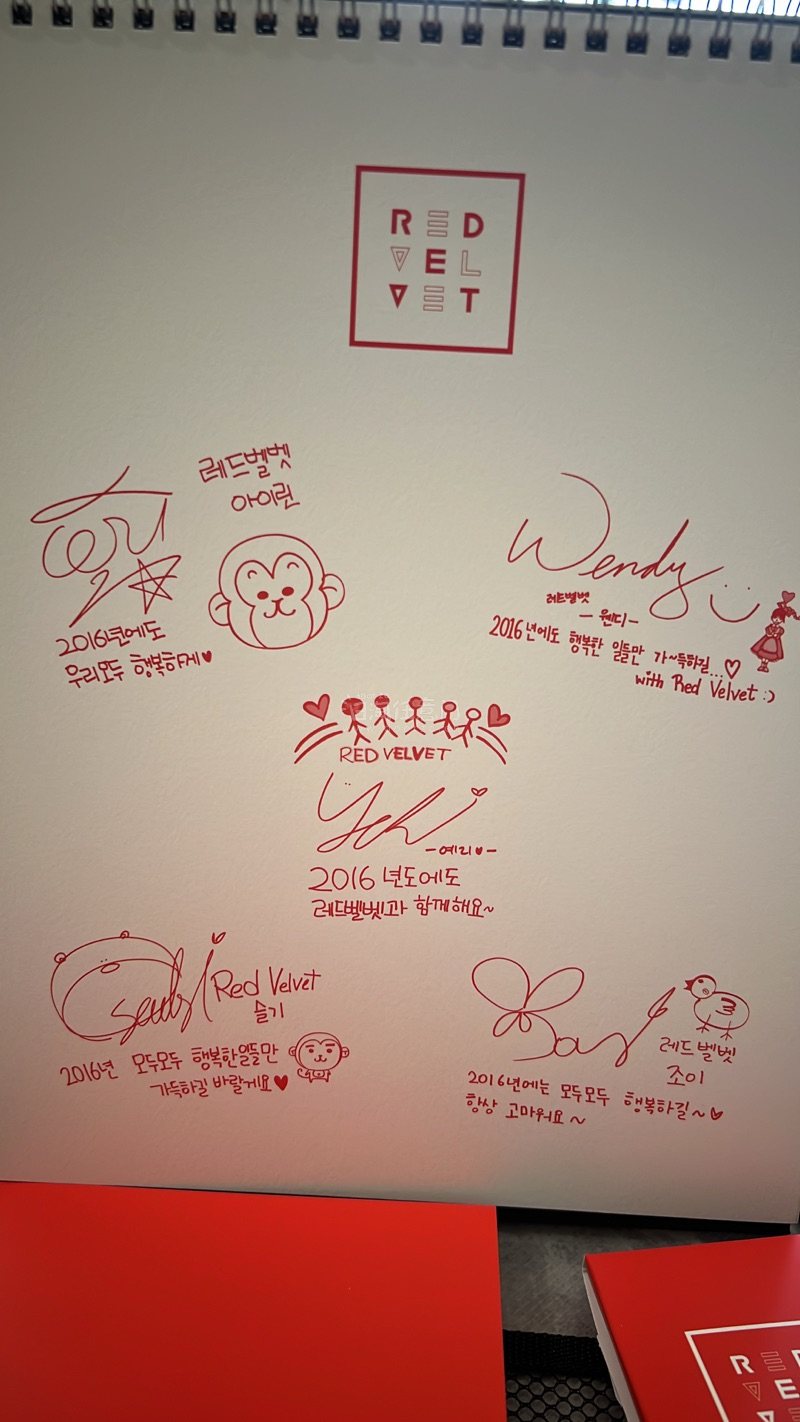 RED
VEL
VET
레드벨벳
아이린
2016년에도
우리모두 행복하게♥
Wendy
레드벨벳
- 웬디 -
2016년에도 행복한 일들만 가~득하길...♡
with Red Velvet :)
RED VELVET
Yeri
-예리♥-
2016 년도에도
레드벨벳과 함께해요~
Red Velvet
슬기
2016년 모두모두 행복한일들만
가득하길 바랄게요♥
Joy
레드벨벳
조이
2016년에는 모두모두 행복하길~♥
항상 고마워요~
RED
VE